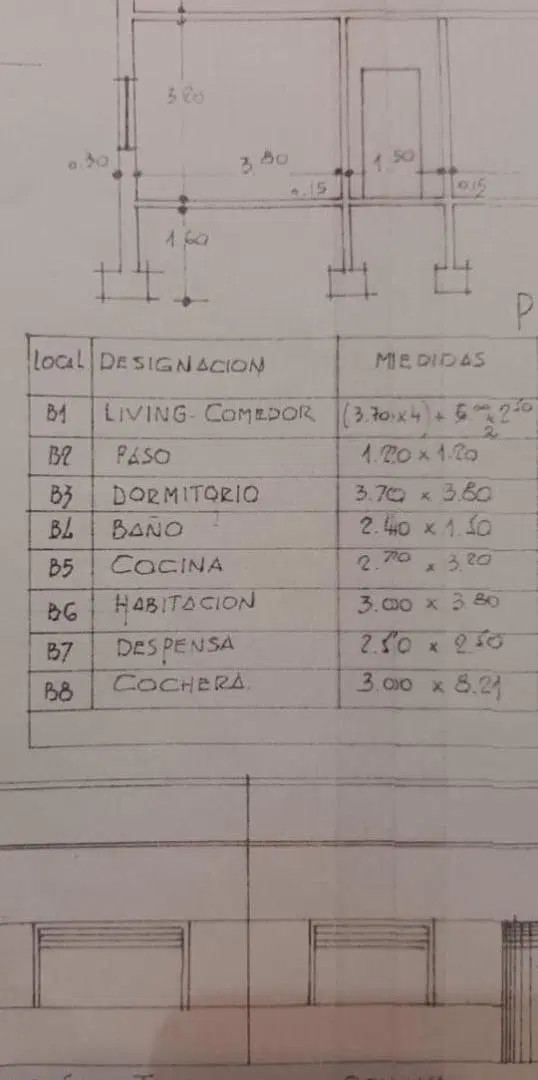 3.20
0.30
3.80
1.50
0.15
0.15
1.60
P
LOCAL DESIGNACION MEDIDAS
B1 LIVING-COMEDOR (3.70 x 4) + 5.00 x 2.50 / 2
B2 PASO 1.20 x 1.20
B3 DORMITORIO 3.70 x 3.80
B4 BAÑO 2.40 x 1.50
B5 COCINA 2.70 x 3.20
B6 HABITACION 3.00 x 3.80
B7 DESPENSA 2.50 x 2.50
B8 COCHERA. 3.00 x 8.21